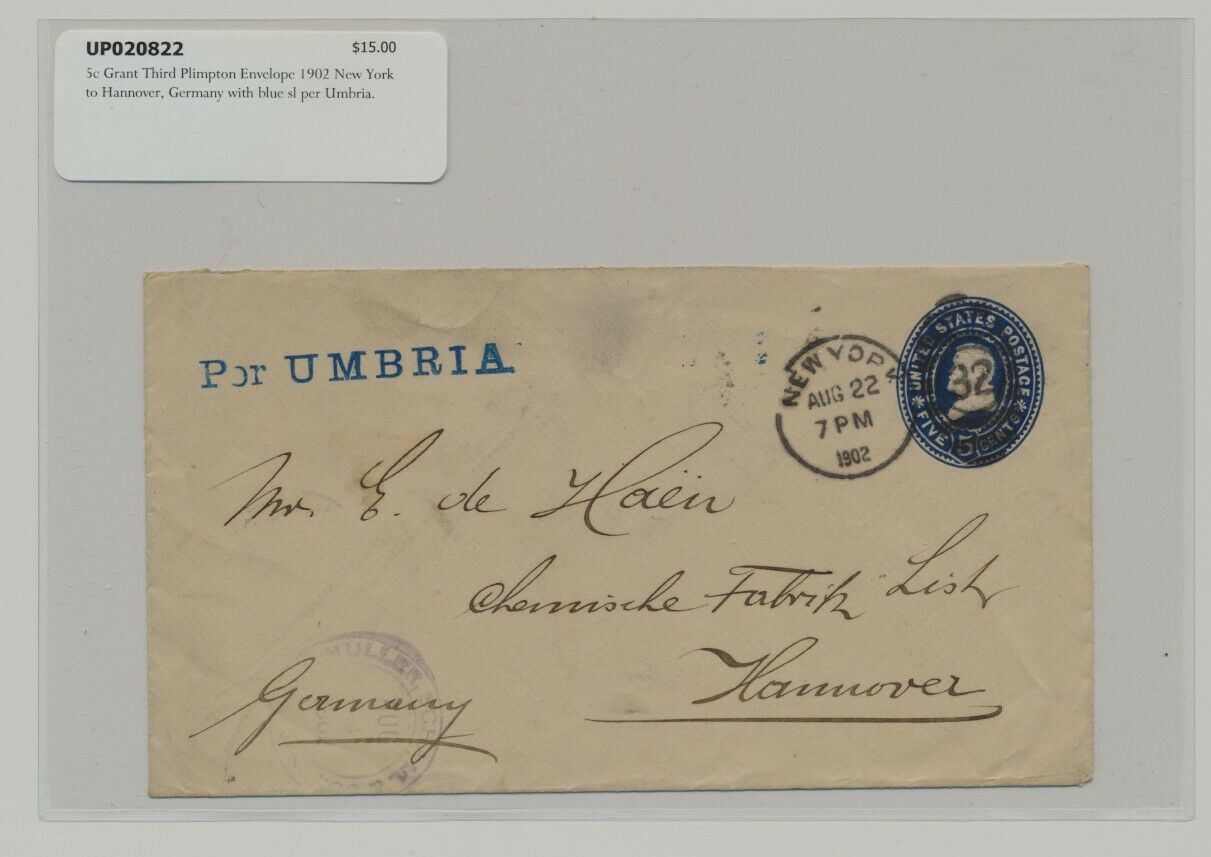 UP020822 $15.00
5c Grant Third Plimpton Envelope 1902 New York
to Hannover, Germany with blue sl per Umbria.
Per UMBRIA.
NEW YORK
AUG 22
7 PM
1902
32
UNITED STATES POSTAGE
FIVE 5 CENTS
Mr. E. de Haën
Chemische Fabrik List
Hannover
Germany
MULLER,